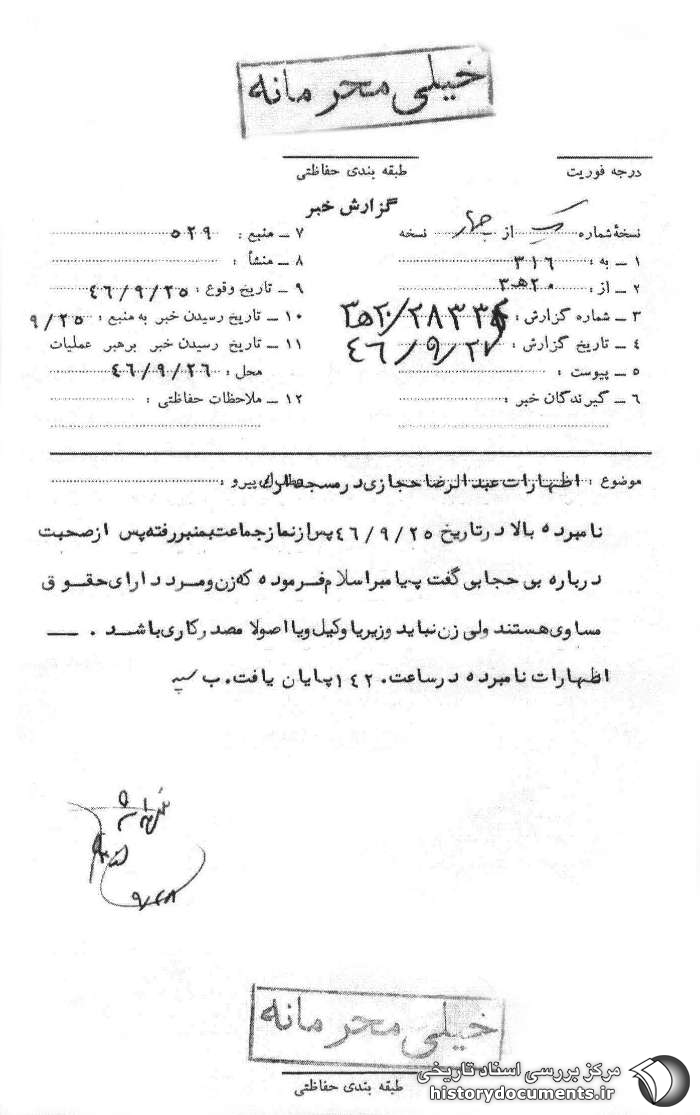 خیلی محرمانه
درجه فوریت
طبقه بندی حفاظتی
گزارش خبر
نسخهٔ شماره یک از چهار نسخه
۱ ــ به : ۳۱۶
۲ ــ از : ۲۰ ه‍ ۳
۳ ــ شماره گزارش :
۴ ــ تاریخ گزارش : ۴۶/۹/۲۷
۵ ــ پیوست :
۶ ــ گیرندگان خبر :
۷ ــ منبع : ۵۲۹
۸ ــ منشأ :
۹ ــ تاریخ وقوع : ۴۶/۹/۲۵
۱۰ ــ تاریخ رسیدن خبر به منبع : ۹/۲۵
۱۱ ــ تاریخ رسیدن خبر برهبر عملیات
محل : ۴۶/۹/۲۶
۱۲ ــ ملاحظات حفاظتی :
موضوع : اظهارات عبدالرضا حجازی در مسجد ارک پیرو :
نامبرده بالا در تاریخ ۴۶/۹/۲۵ پس از نماز جماعت بمنبر رفته پس از صحبت
درباره بی حجابی گفت پیامبر اسلام فرموده که زن و مرد دارای حقوق
مساوی هستند ولی زن نباید وزیر یا وکیل و یا اصولا مصدر کاری باشد . ــ
اظهارات نامبرده در ساعت ۱۴۲۰ پایان یافت . ب
۹/۲۸
خیلی محرمانه
طبقه بندی حفاظتی
مرکز بررسی اسناد تاریخی
historydocuments.ir